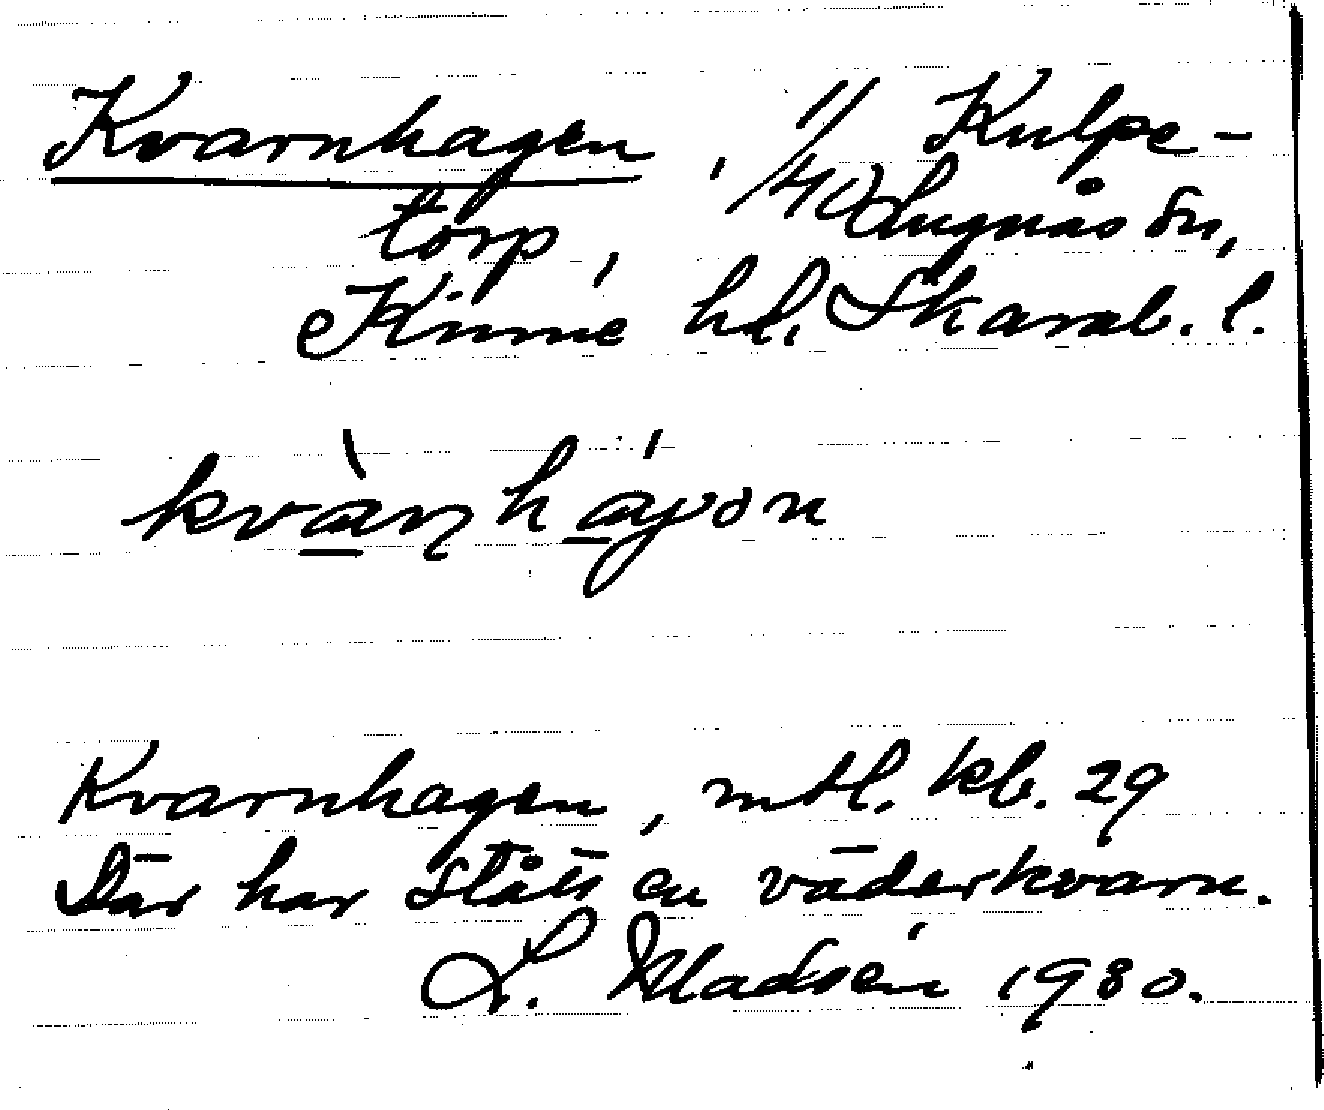 Kvarnhagen, 1/40 Kulpe-
torp, Lugnås sn,
Kinne hd. Skarab. l.
kvàn hájon
Kvarnhagen, mtl. kb. 29
Där har stått en väderkvarn.
L. Madsén 1980.